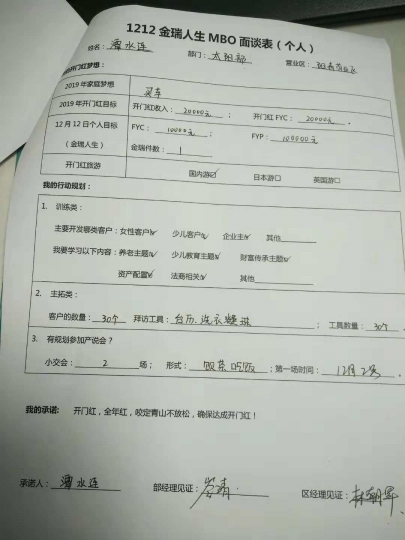 1212 金瑞人生 MBO 面谈表（个人）
姓名：覃水连 部门：太阳部 营业区：
开门红梦想：
2019 年家庭梦想 买车
2019 年开门红目标 开门红收入：20000元； 开门红 FYC：20000元。
12 月 12 日个人目标（金瑞人生） FYC：10000元； FYP：100000元
金瑞件数：1
开门红旅游 国内游☑ 日本游□ 英国游□
我的行动规划：
1. 训练类：
主要开发哪类客户：女性客户☑ 少儿客户☑ 企业主☑ 其他
我要学习以下内容：养老主题☑ 少儿教育主题☑ 财富传承主题☑
资产配置☑ 法商相关☑ 其他
2. 主拓类：
客户的数量：30个 拜访工具：台历.洗衣凝珠； 工具数量：30个.
3. 有规划参加产说会？
小交会：2 场； 形式：饭菜吃饭；第一场时间：12月2号
我的承诺： 开门红，全年红，咬定青山不放松，确保达成开门红！
承诺人：覃水连 部经理见证： 区经理见证：